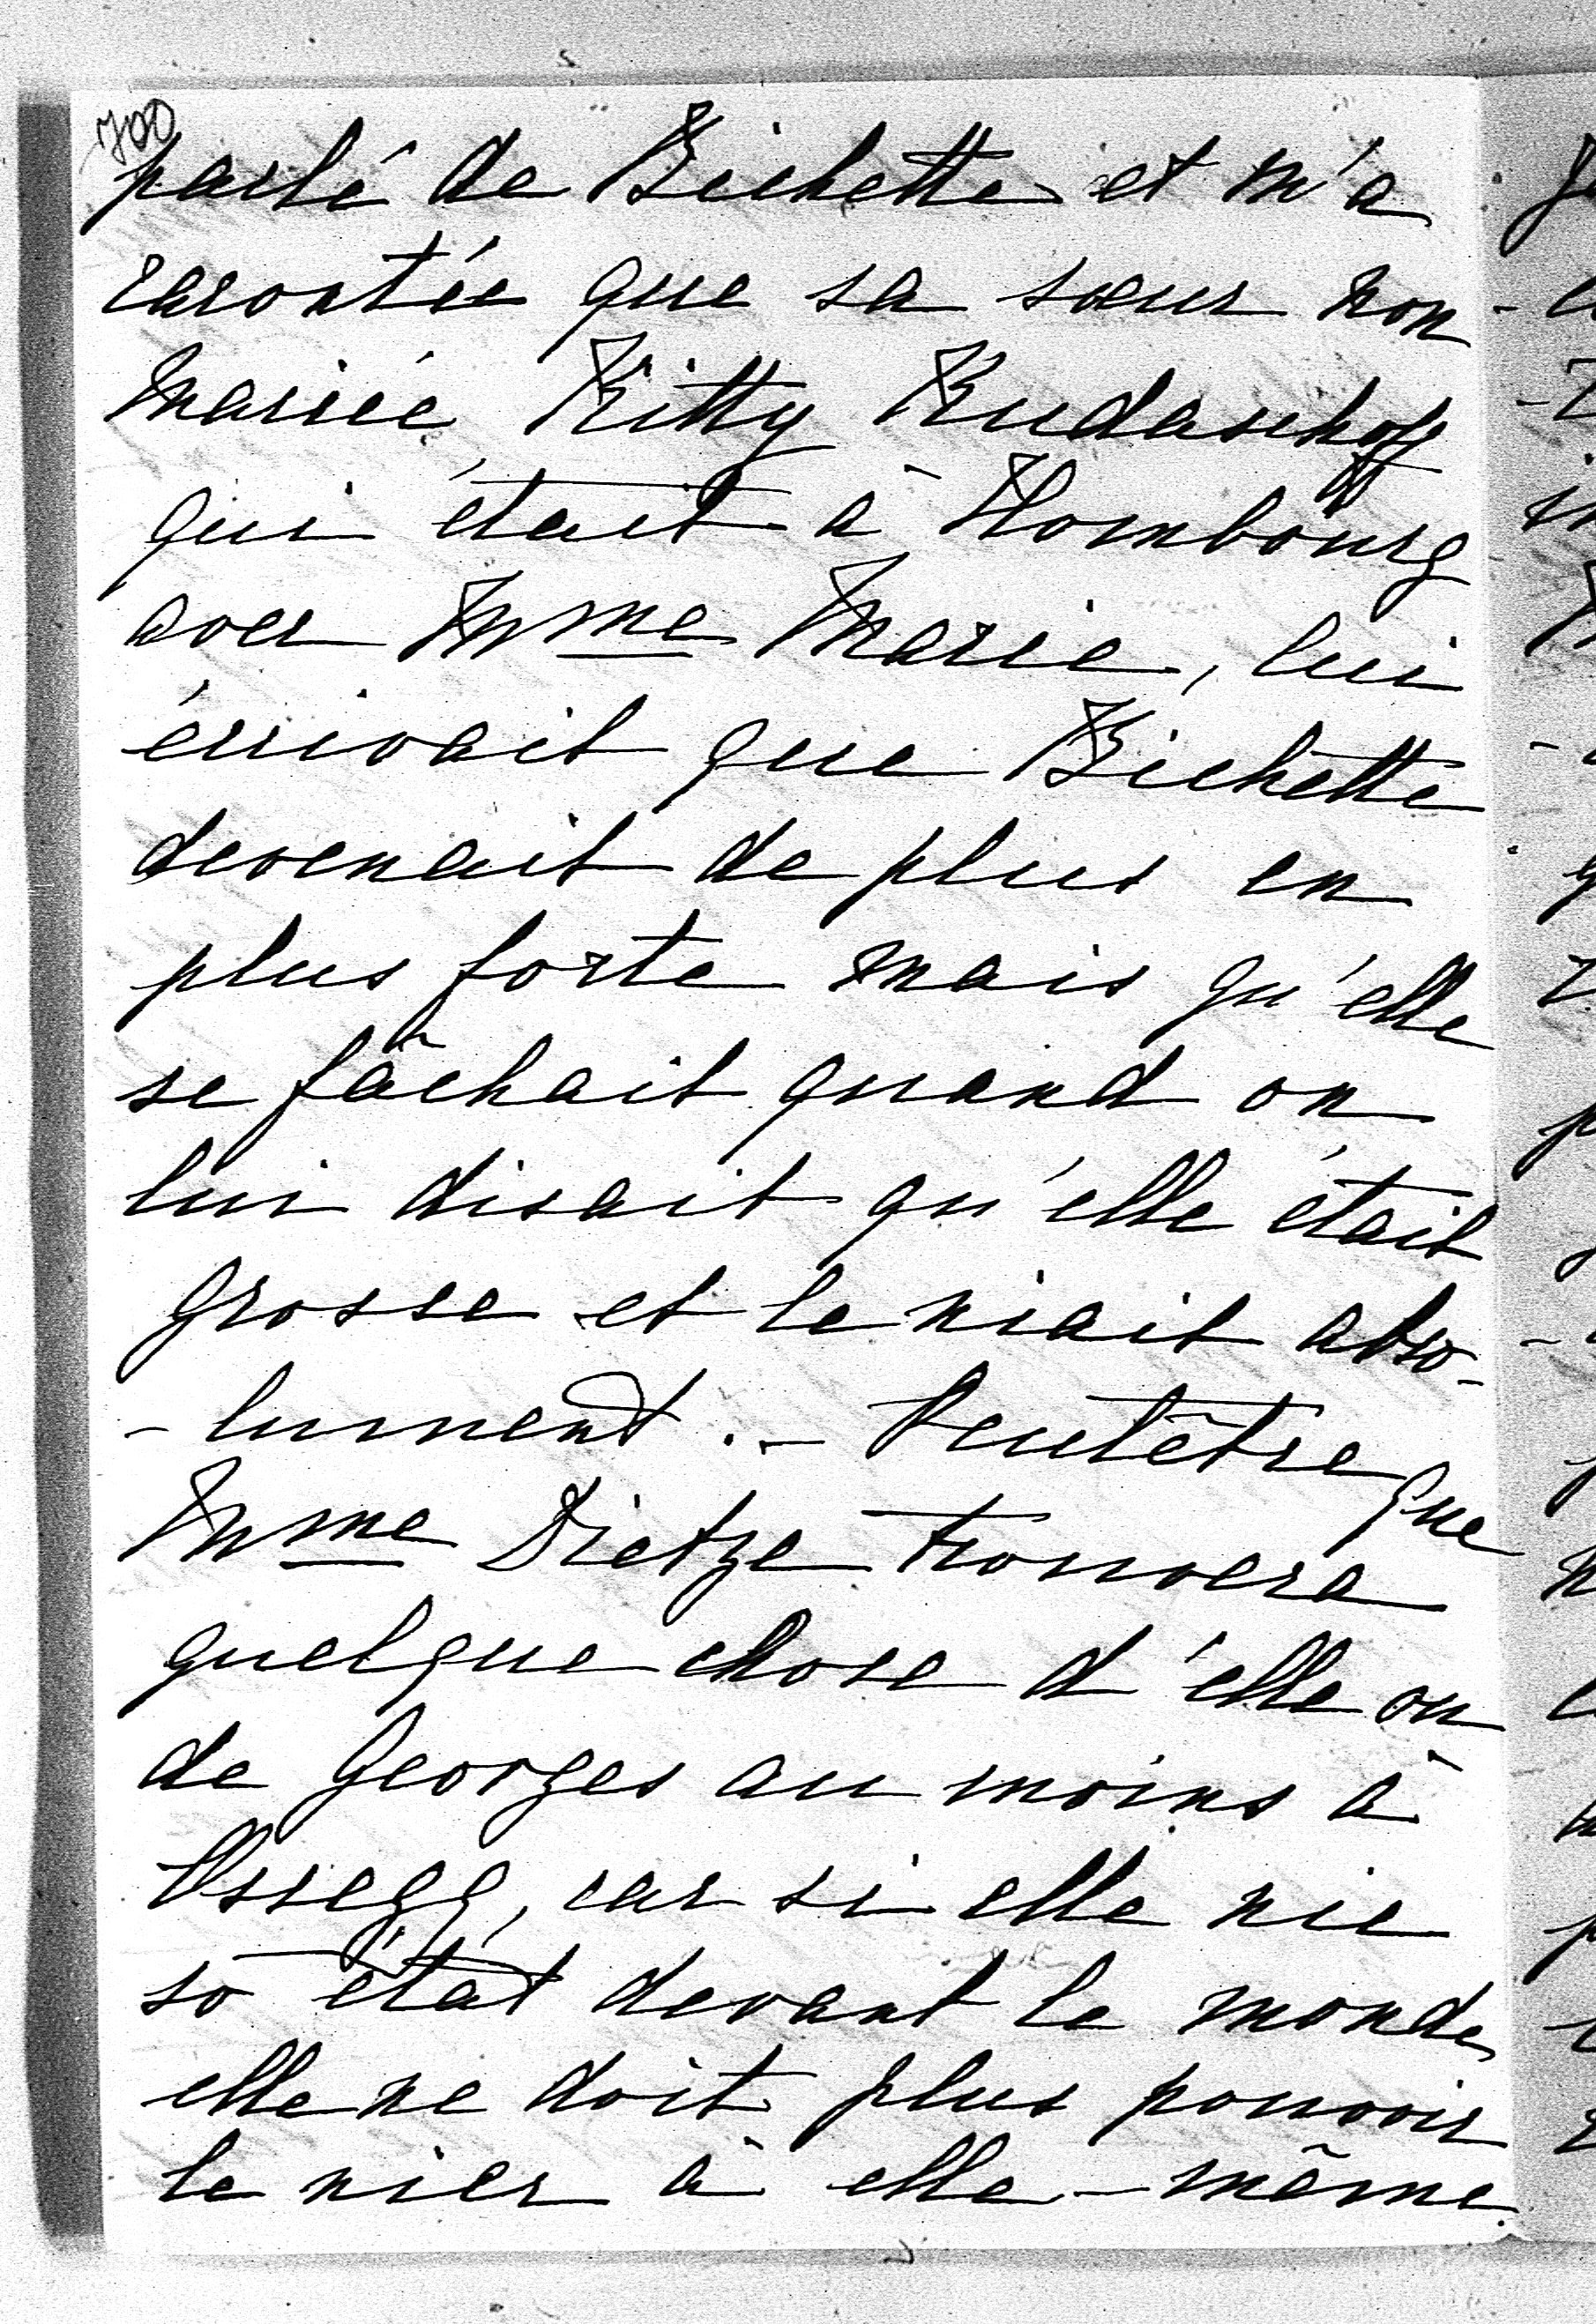 700
parlé de Bichette et m'a
racontée que sa sœur non
mariée Kitty Kudascheff
qui était à Hombourg
avec Mme Marie, lui
écrivait que Bichette
devenait de plus en
plus forte mais qu'elle
se fâchait quand on
lui disait qu'elle était
grosse et le niait abso-
-lument. – Peutêtre que
Mme Dietze trouvera
quelque chose d'elle ou
de Georges au moins à
Ossegg, car si elle nie
so état devant le monde
elle ne doit plus pouvoir
le nier à elle-même.